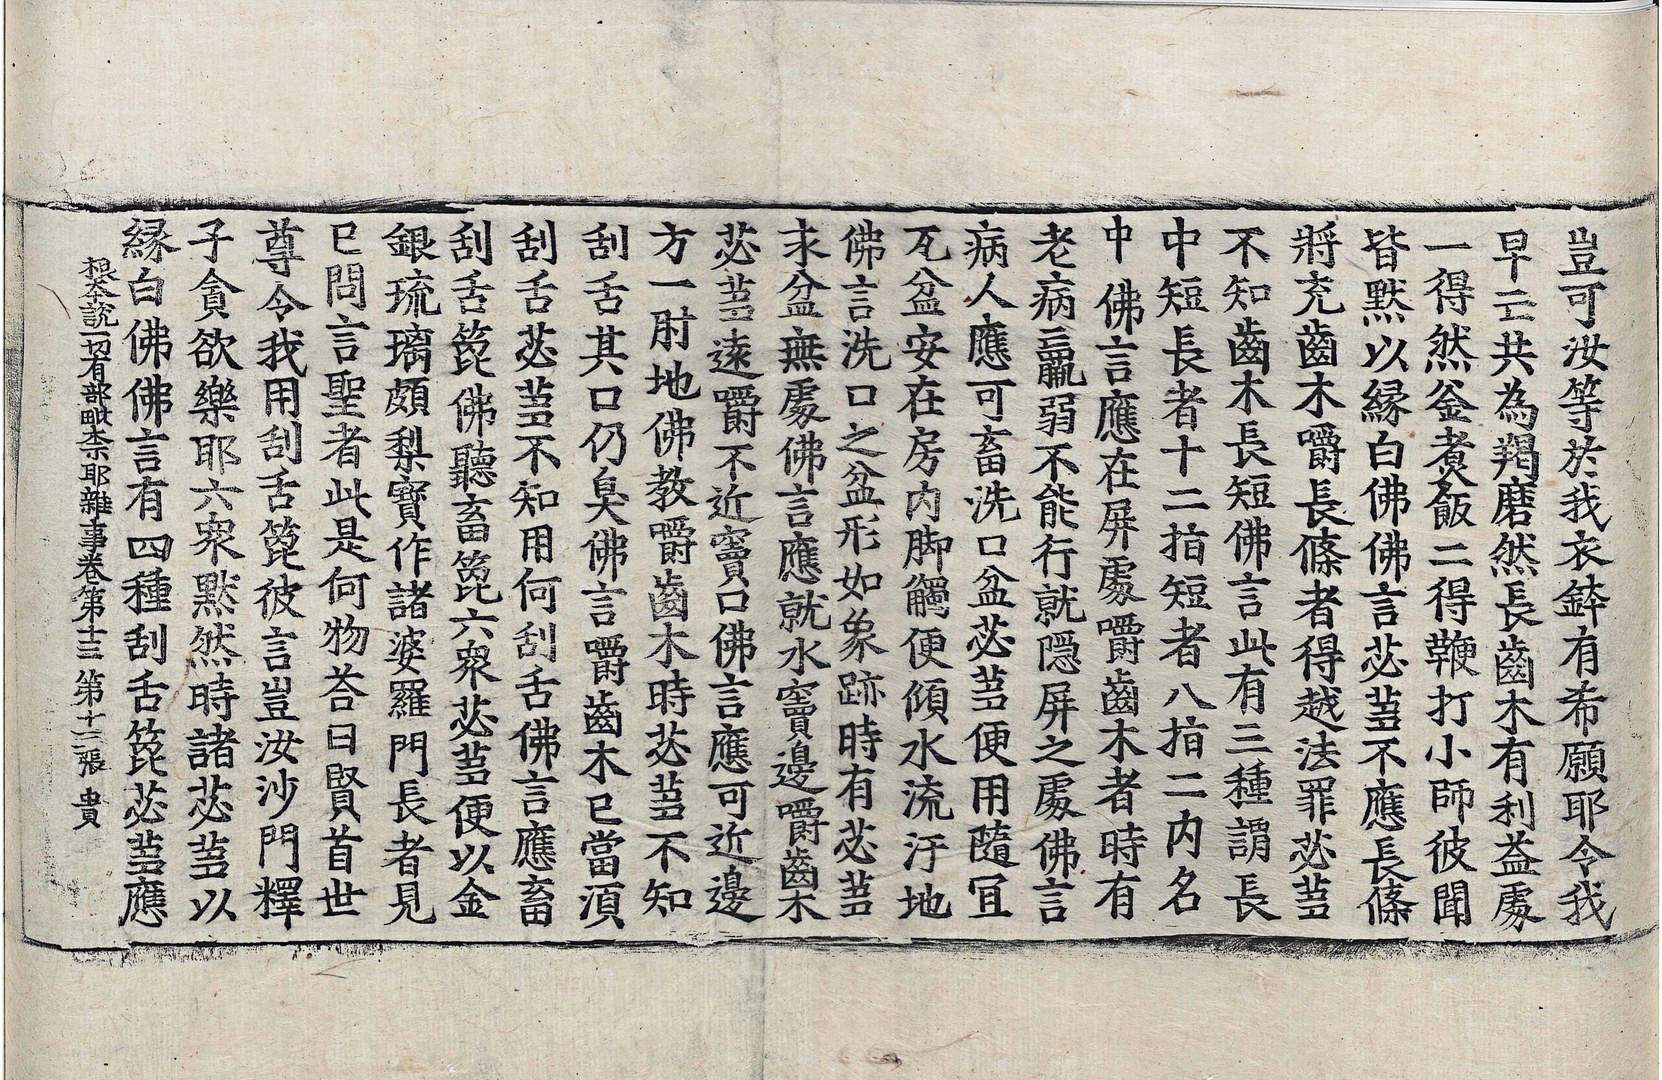 豈可汝等於我衣鉢有希願耶令我
早亡共為羯磨然長齒木有利益處
一得然釜煮飯二得鞭打小師彼聞
皆默以縁白佛佛言苾芻不應長條
將充齒木嚼長條者得越法罪苾芻
不知齒木長短佛言此有三種謂長
中短長者十二指短者八指二內名
中佛言應在屏處嚼齒木者時有
老病羸弱不能行就隱屏之處佛言
病人應可畜洗口盆苾芻便用隨冝
瓦盆安在房內脚觸便傾水流汙地
佛言洗口之盆形如象跡時有苾芻
求盆無處佛言應就水竇邊嚼齒木
苾芻遠嚼不近竇口佛言應可近邊
方一肘地佛教嚼齒木時苾芻不知
刮舌其口仍臭佛言嚼齒木已當湏
刮舌苾芻不知用何刮舌佛言應畜
刮舌箆佛聽畜箆六衆苾芻便以金
銀琉璃頗梨寶作諸婆羅門長者見
已問言聖者此是何物荅曰賢首世
尊令我用刮舌箆彼言豈汝沙門釋
子貪欲樂耶六衆默然時諸苾芻以
縁白佛佛言有四種刮舌箆苾芻應
根本說一切有部毗柰耶雜事卷第十三 第十三張 貴